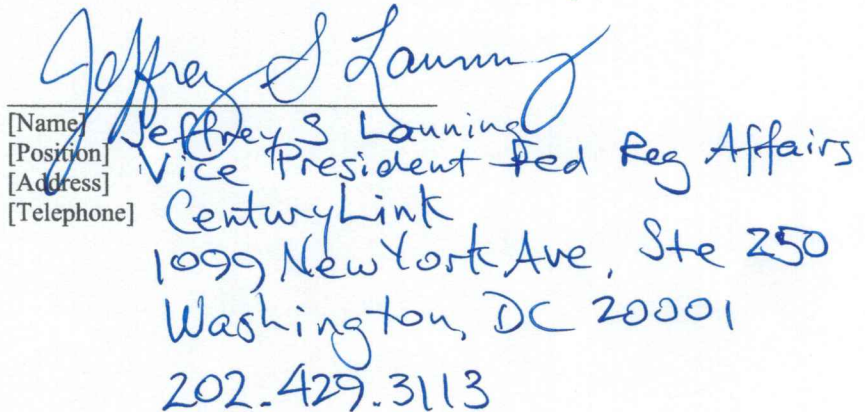 Jeffrey S Lanning
[Name] Jeffrey S Lanning
[Position] Vice President Fed Reg Affairs
[Address] CenturyLink
[Telephone] 1099 New York Ave, Ste 250
Washington, DC 20001
202.429.3113